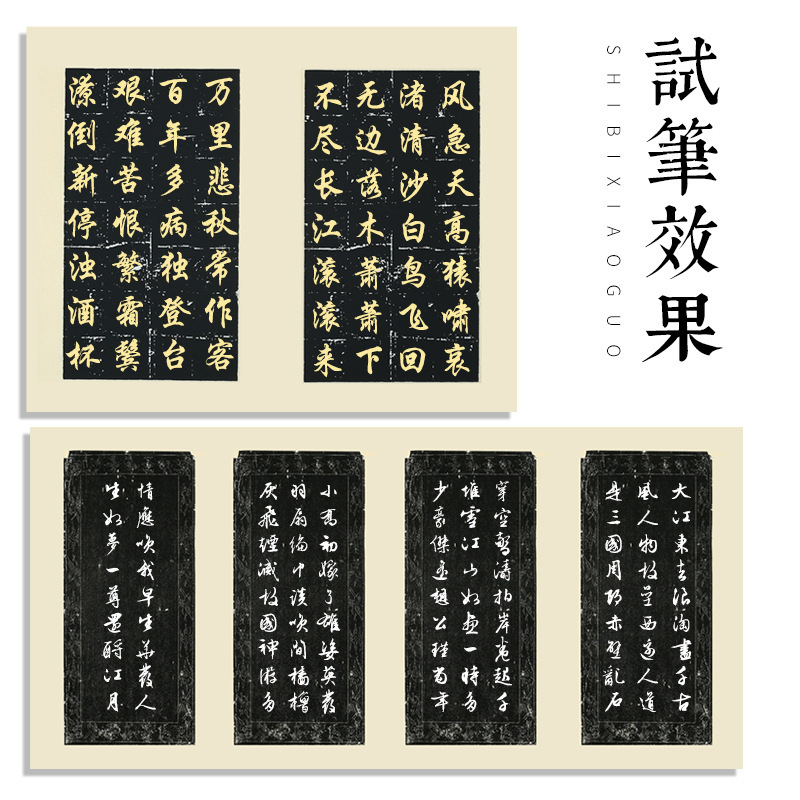 試筆效果
SHIBIXIAOGUO
风急天高猿啸哀
渚清沙白鸟飞回
无边落木萧萧下
不尽长江滚滚来
万里悲秋常作客
百年多病独登台
艰难苦恨繁霜鬓
潦倒新停浊酒杯
大江東去浪淘盡千古
風人物故壘西邊人道
是三國周郎赤壁亂石
穿空驚濤拍岸卷起千
堆雪江山如畫一時多
少豪傑遥想公瑾當年
小喬初嫁了雄姿英發
羽扇綸巾談笑間檣櫓
灰飛煙滅故國神游多
情應笑我早生華髮人
生如夢一尊還酹江月